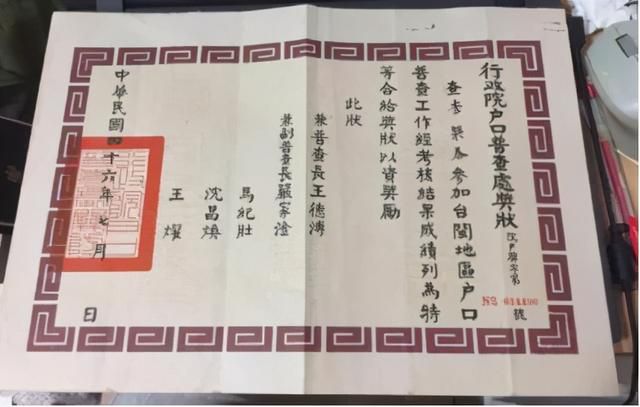 行政院戶口普查處獎狀
院戶普字第 號
查李 參加台閩地區戶口
普查工作經考核結果成績列為特
等合給獎狀以資獎勵
此狀
兼普查長王德溥
兼副普查長嚴家淦
馬紀壯
沈昌煥
王燿
中華民國四十六年七月 日